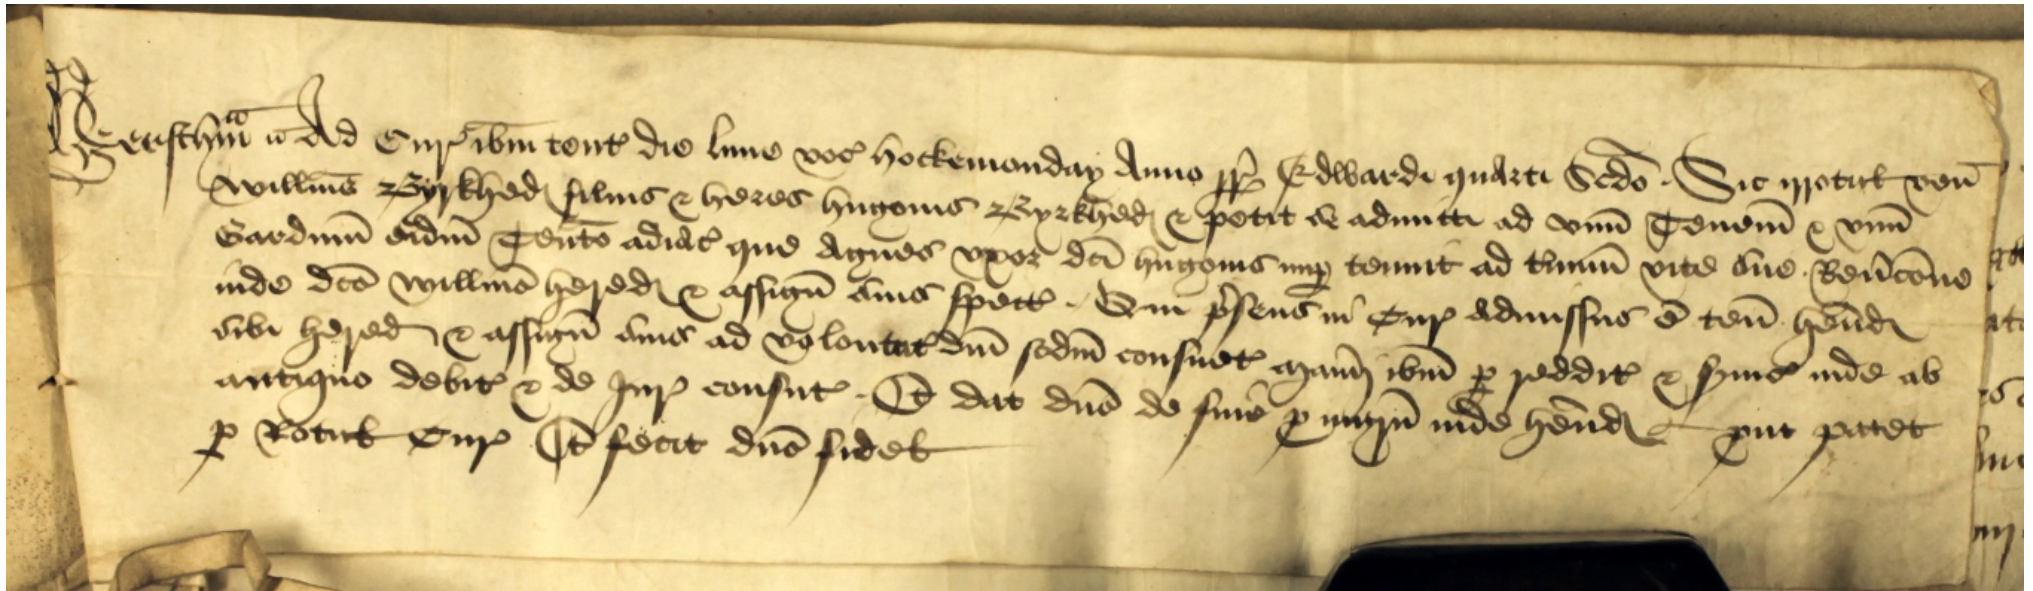 Ad Cur ibm tent die lune voc hockemonday Anno RR Edwardi quarti Scdo . Sic irrotul ven
Willms Byrkhed filius & heres hugonis Byrkhed & petit se admitti ad vnu Tenem & vnu
Gardinu eidm Tento adiac que Agnes vxor dci hugonis nup tenuit ad tminu vite sue . Reuercone
inde dco Willmo hered & assign suis spect . Qui psens in Cur admissus e ten hend
sibi hered & assign suis ad voluntat dni scdm consuet Maner ibm p reddit & fyne inde ab
antiquo debit & de Jur consuet . Et dat dno de fine p ingru inde hend put patet
p Rotul Cur Et fecit dno fidel